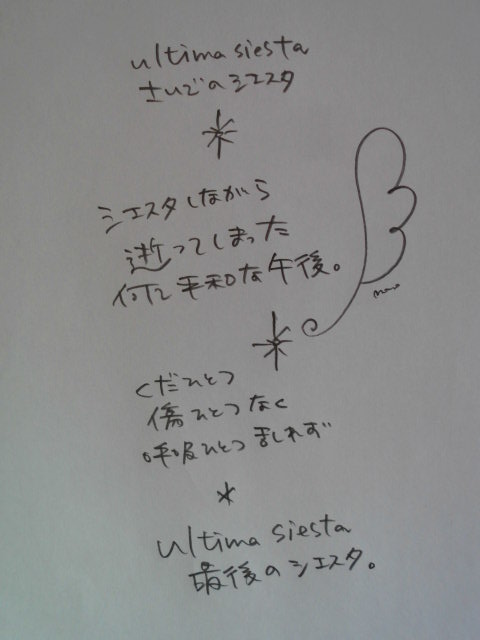 ultima siesta
さいごのシエスタ
シエスタしながら
逝ってしまった
何と平和な午後。
くだひとつ
傷ひとつなく
呼吸ひとつ まじれず
ultima siesta
最後のシエスタ。